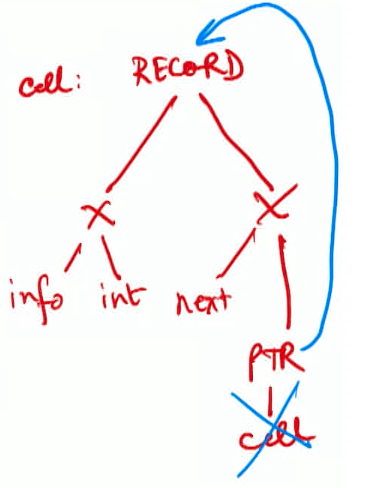 cell: RECORD
X X
info int next
PTR
cell